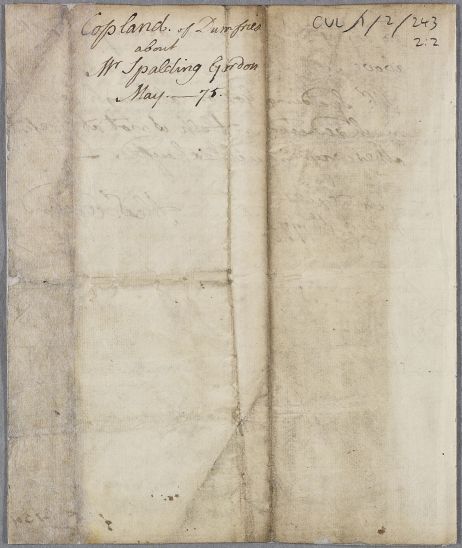 Copland. of Dumfries
about
Mr Spalding Gordon
May — 75.
CUL/1/2/243
2:2